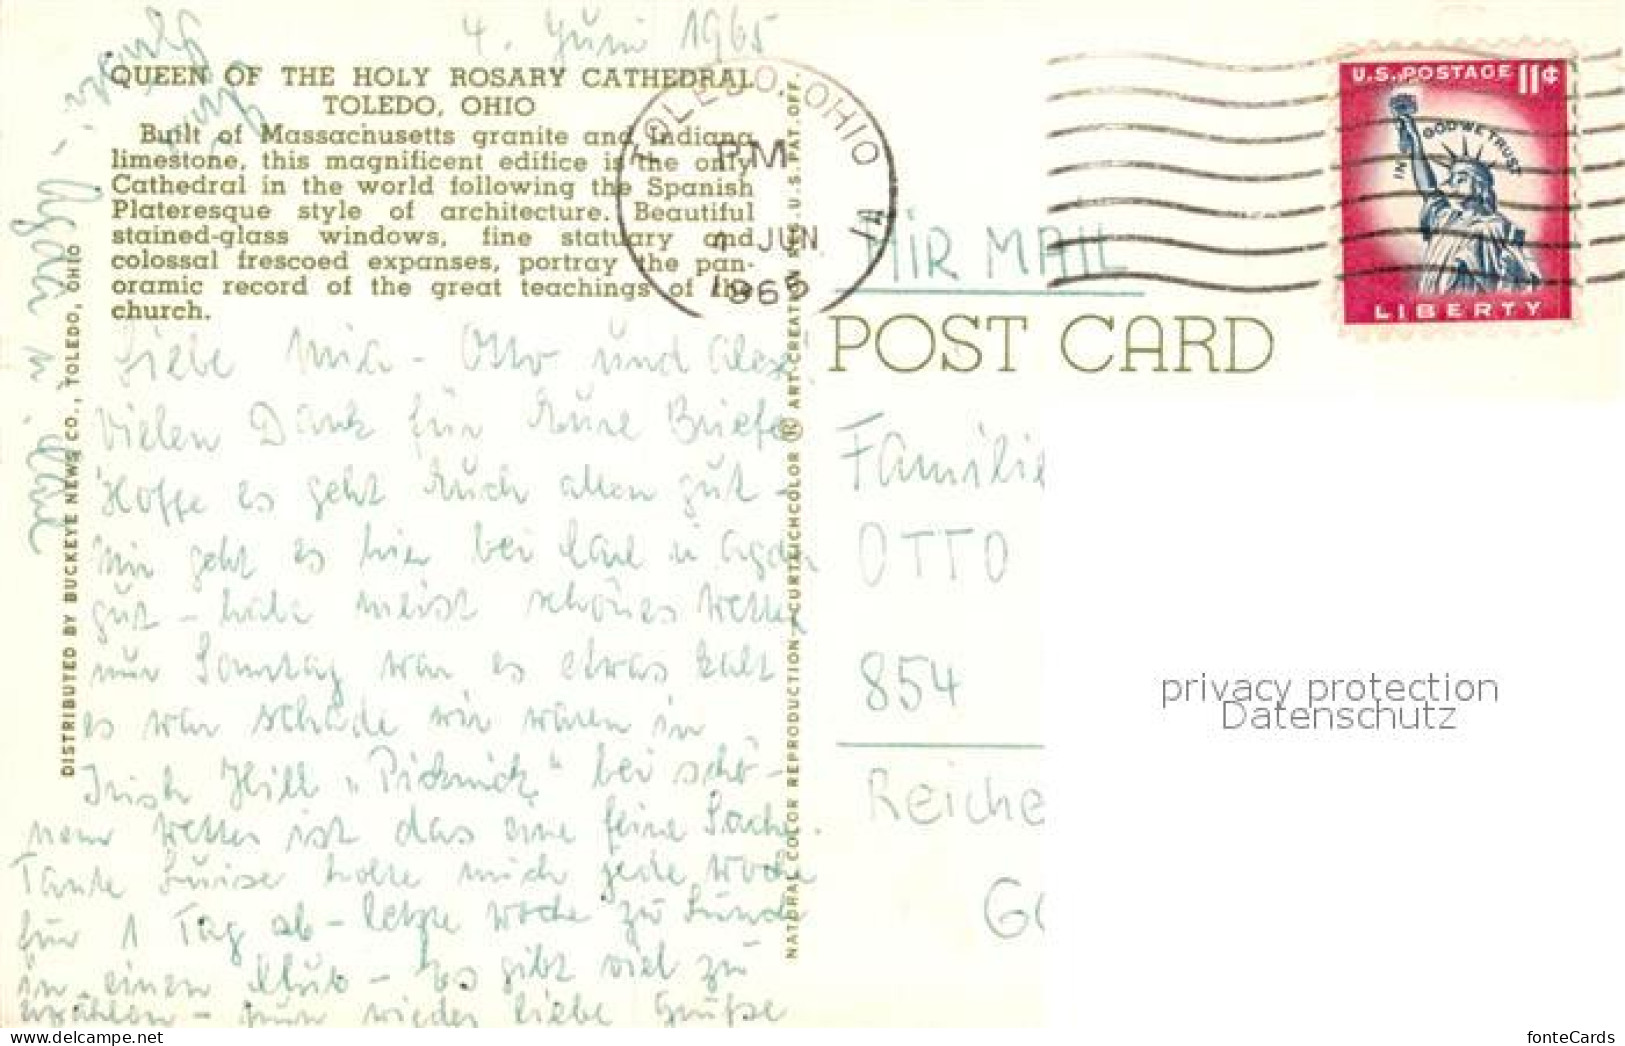 4. Juni 1965
QUEEN OF THE HOLY ROSARY CATHEDRAL
TOLEDO, OHIO
Built of Massachusetts granite and Indiana
limestone, this magnificent edifice is the only
Cathedral in the world following the Spanish
Plateresque style of architecture. Beautiful
stained-glass windows, fine statuary and
colossal frescoed expanses, portray the pan-
oramic record of the great teachings of the
church.
Liebe Mia - Otto und Alex!
Vielen Dank für Eure Briefe
Hoffe es geht Euch allen gut -
Mir geht es hier bei Karl u Agda
gut - habe meist schönes Wetter
nur Sonntag war es etwas kalt
es war schade wir waren in
Irish Hill „Picknick" bei schö-
nem Wetter ist das eine feine Sache.
Tante Luise holte mich jede Woche
für 1 Tag ab - letzte Woche zu Lunch
in einen Klub - Es gibt viel zu
erzählen - nun wieder liebe Grüße
Agda u. Karl
DISTRIBUTED BY BUCKEYE NEWS CO., TOLEDO, OHIO
NATURAL COLOR REPRODUCTION—CURTEICHCOLOR ® ART-CREATION REG. U.S. PAT. OFF.
TOLEDO, OHIO
PM
4 JUN
1965
1A
U.S. POSTAGE 11¢
IN GOD WE TRUST
LIBERTY
AIR MAIL
POST CARD
Familie
OTTO
854
Reiche
privacy protection
Datenschutz
My-Main.com
fonteCards